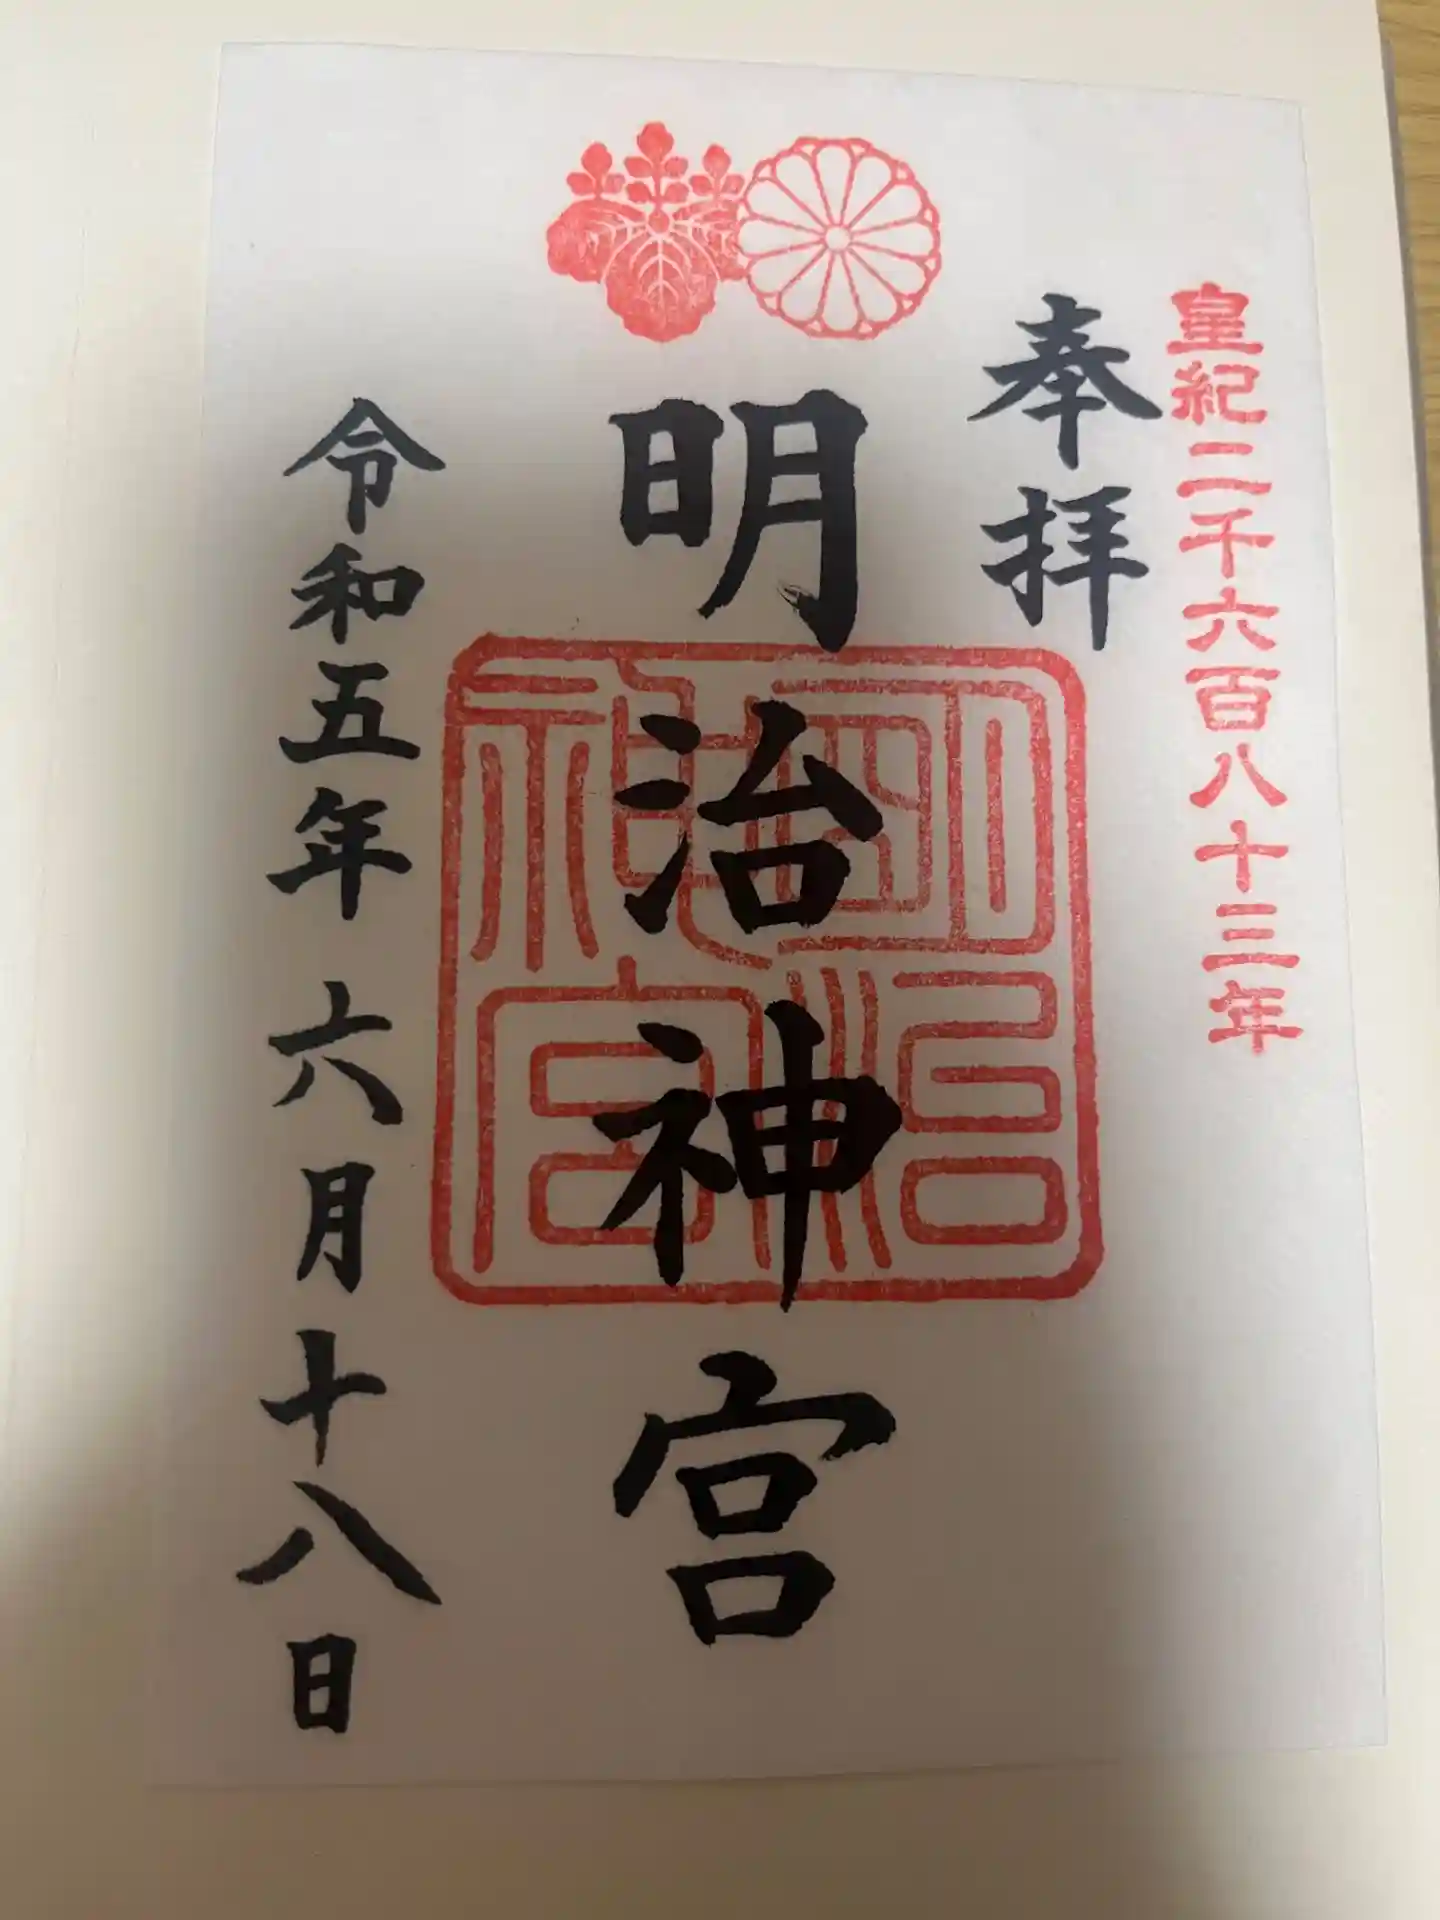 皇紀二千六百八十三年
奉拝
明治神宮
明治神宮
令和五年六月十八日